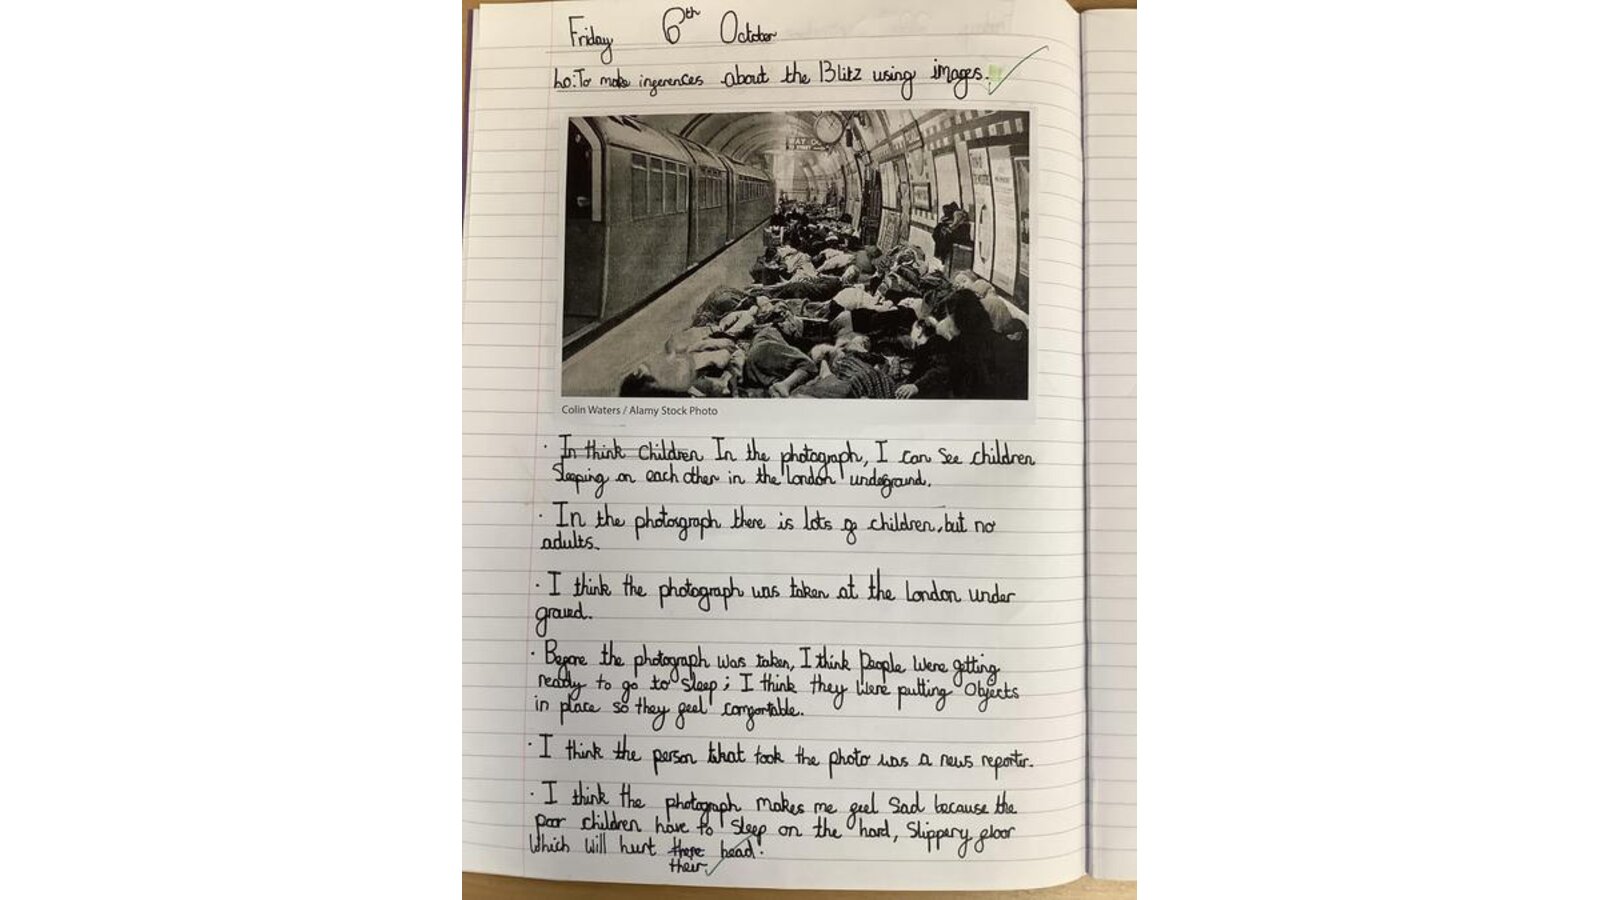 Friday 6th October
LO: To make inferences about the Blitz using images.
WAY OUT
Colin Waters / Alamy Stock Photo
· In think children In the photograph, I can see children
Sleeping on each other in the london underground.
· In the photograph there is lots of children, but no
adults.
· I think the photograph was taken at the London under
ground.
· Before the photograph was taken, I think People were getting
ready to go to sleep; I think they were putting Objects
in place so they feel comfortable.
· I think the person that took the photo was a news reporter.
· I think the photograph makes me feel sad because the
poor children have to sleep on the hard, slippery floor
which will hurt there head.
their